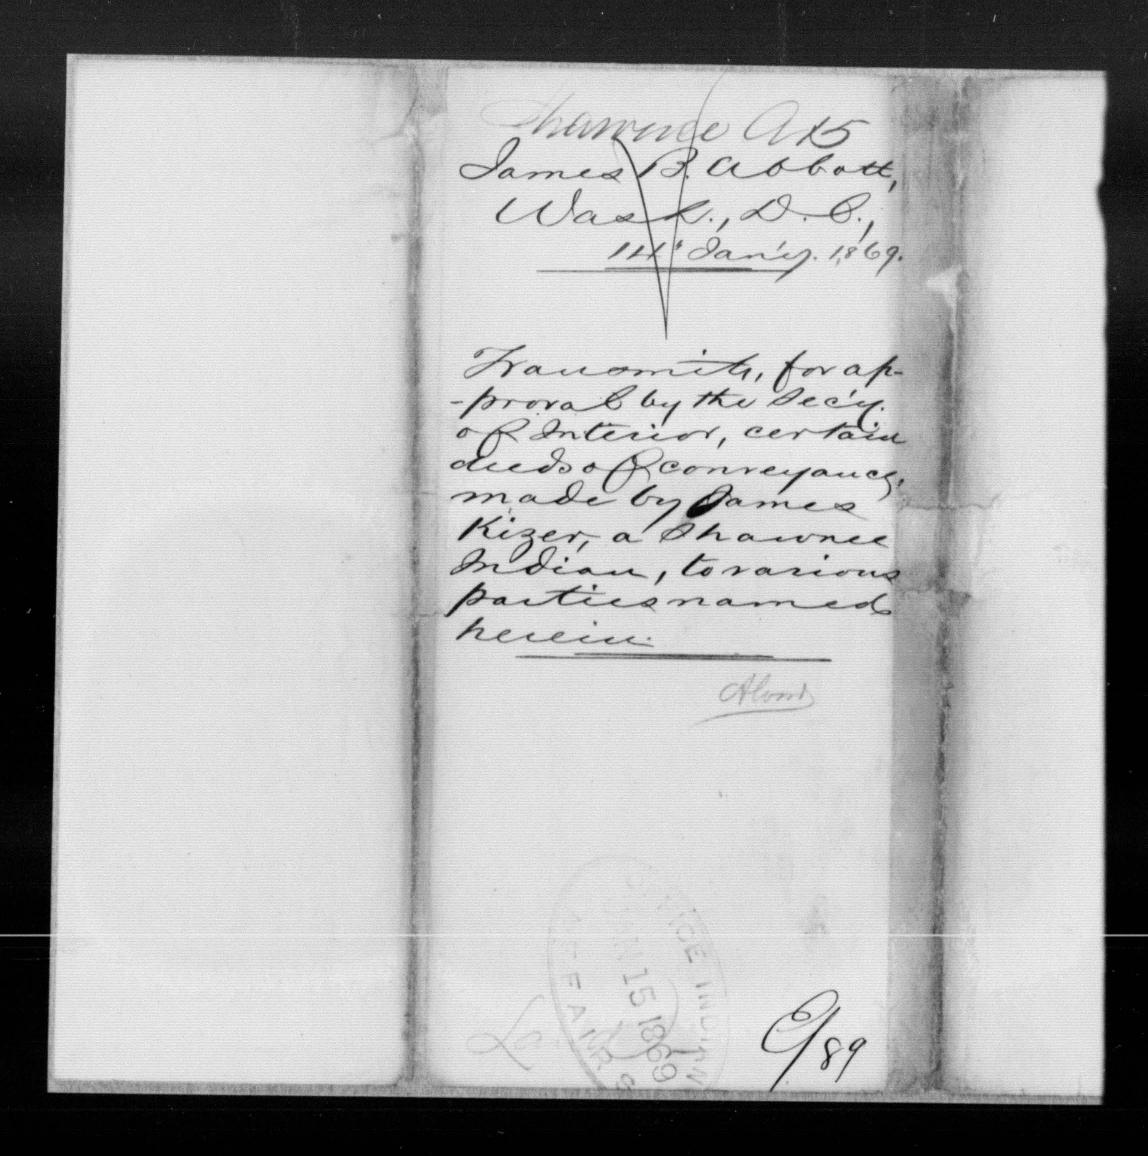 Shawnee A 15
James B. Abbott,
Wash., D. C.,
14" Jan'y. 1869.
Transmits, for ap-
-proval by the Sec'y.
of Interior, certain
deeds of conveyance,
made by James
Kizer, a Shawnee
Indian, to various
parties named
herein.
OFFICE INDIAN
JAN 15 1869
AFFAIRS
89